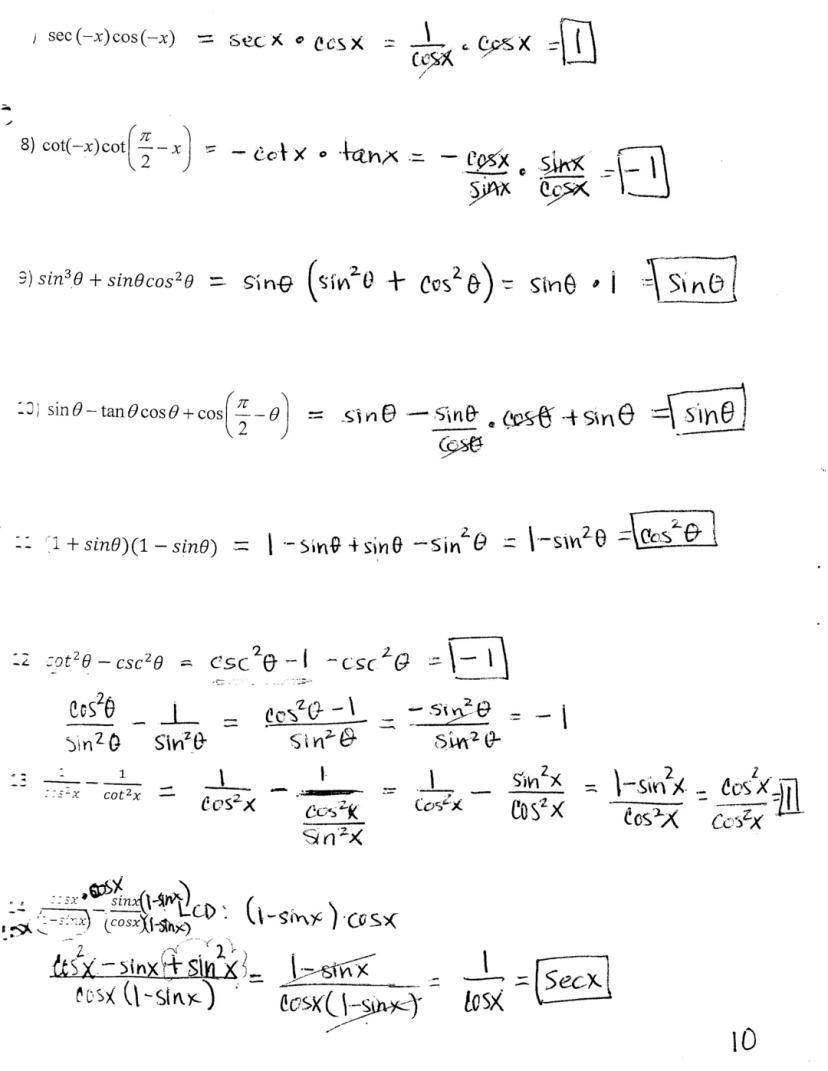 ) sec (−x) cos (−x) = sec x • cos x = 1/cosx • cos x = 1
8) cot(−x)cot(π/2 − x) = − cot x • tan x = − cosx/sinx • sinx/cosx = −1
9) sin³θ + sinθcos²θ = sinθ (sin²θ + cos²θ) = sinθ • 1 = sinθ
10) sin θ − tan θ cos θ + cos(π/2 − θ) = sinθ − sinθ/cosθ • cosθ + sinθ = sinθ
11 (1 + sinθ)(1 − sinθ) = 1 − sinθ + sinθ − sin²θ = 1−sin²θ = cos²θ
12 cot²θ − csc²θ = csc²θ − 1 − csc²θ = −1
cos²θ/sin²θ − 1/sin²θ = cos²θ − 1/sin²θ = −sin²θ/sin²θ = −1
13 1/cos²x − 1/cot²x = 1/cos²x − 1/(cos²x/sin²x) = 1/cos²x − sin²x/cos²x = 1−sin²x/cos²x = cos²x/cos²x = 1
14 cosx • cosx/(1−sinx) − sinx(1−sinx)/(cosx)(1−sinx) LCD: (1−sinx)•cosx
cos²x − sinx + sin²x/cosx (1−sinx) = 1−sinx/cosx(1−sinx) = 1/cosx = secx
10